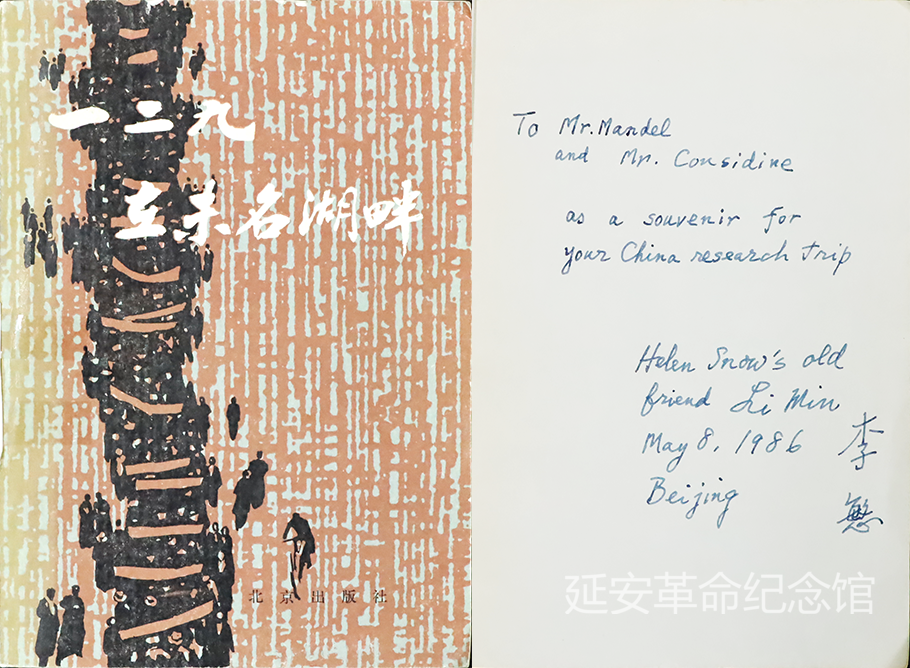 一二九
在未名湖畔
北京出版社
To Mr. Mandel
and Mr. Considine
as a souvenir for
your China research trip
Helen Snow's old
friend Li Min
May 8, 1986
Beijing
李
愍
延安革命纪念馆